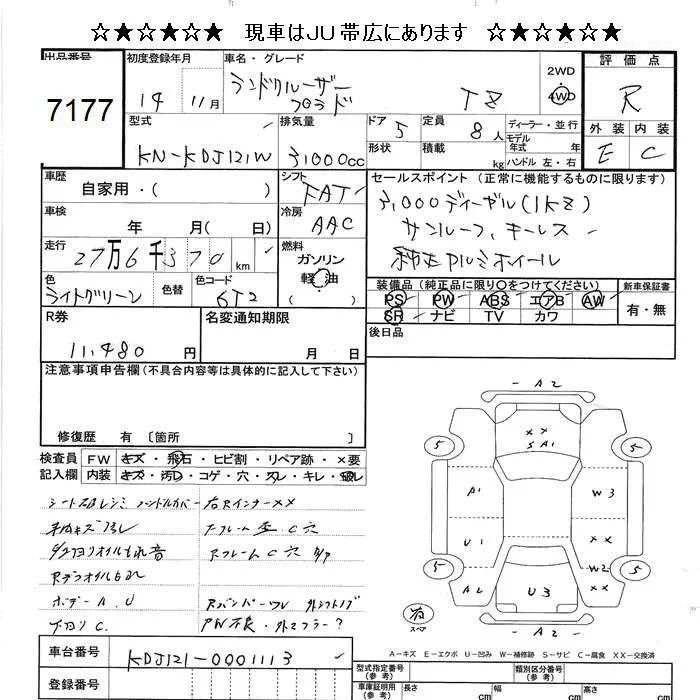 ☆★☆★☆★ 現車はJU帯広にあります ☆★☆★☆★
出品番号 初度登録年月 車名・グレード 2WD 評価点
7177 14 11月 ランドクルーザー プラド TZ 4WD R
型式 排気量 ドア 定員 ディーラー・並行 外装 内装
KN-KDJ121W 3,000cc 5 8人 モデル年式 年 E C
形状 積載 kg ハンドル 左・右
車歴 シフト セールスポイント(正常に機能するものに限ります)
自家用・( ) FAT 3,000ディーゼル(1KZ)
車検 冷房 サンルーフ、キーレス
年 月( 日) AAC 純正アルミホイール
走行 燃料
27万6千370km ガソリン
軽油
色 色替 色コード 装備品(純正品に限り○をつけてください) 新車保証書
ライトグリーン 6T2 PS PW ABS エアB AW 有・無
SR ナビ TV カワ
R券 名変通知期限 後日品
11,480円 月 日
注意事項申告欄(不具合内容等は具体的に記入して下さい)
修復歴 有 〔箇所 〕
検査員記入欄 FW キズ・飛石・ヒビ割・リペア跡・×要
内装 キズ・汚レ・コゲ・穴・スレ・キレ・破レ
ハンドルカバー 右Rインナー××
C穴
Rフレーム C穴
Rデフオイルもれ
ボデーA.U
下廻りC. PW不良・外マフラー?
A2
××
SA1
5 5
A1 W3
U1 ××
W2
××
5 5
U3
A2
有
スペア
A－キズ E－エクボ U－凹み W－補修跡 S－サビ C－腐食 XX－交換済
車台番号 KDJ121-0001113
型式指定番号(参考) 類別区分番号(参考)
登録番号 車庫証明用(参考) 長さ cm 幅 cm 高さ cm